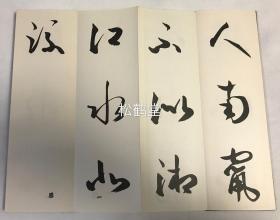 人南竄
不似湘
江水北
流
松鹤堂